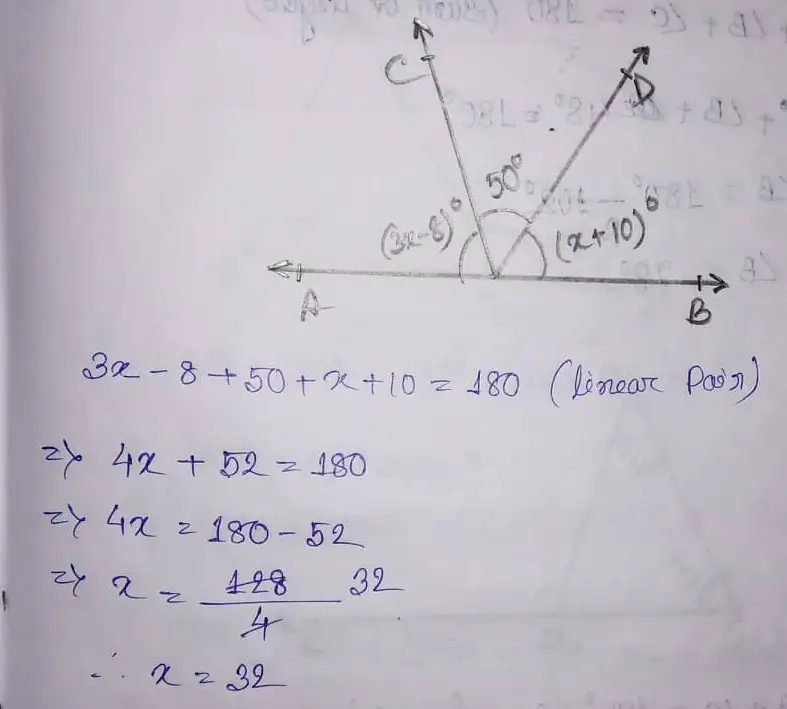 C
D
50°
(3x-8)°
(x+10)°
A
B
3x - 8 + 50 + x + 10 = 180 (linear Pair)
=> 4x + 52 = 180
=> 4x = 180 - 52
=> x = 128/4 32
∴ x = 32